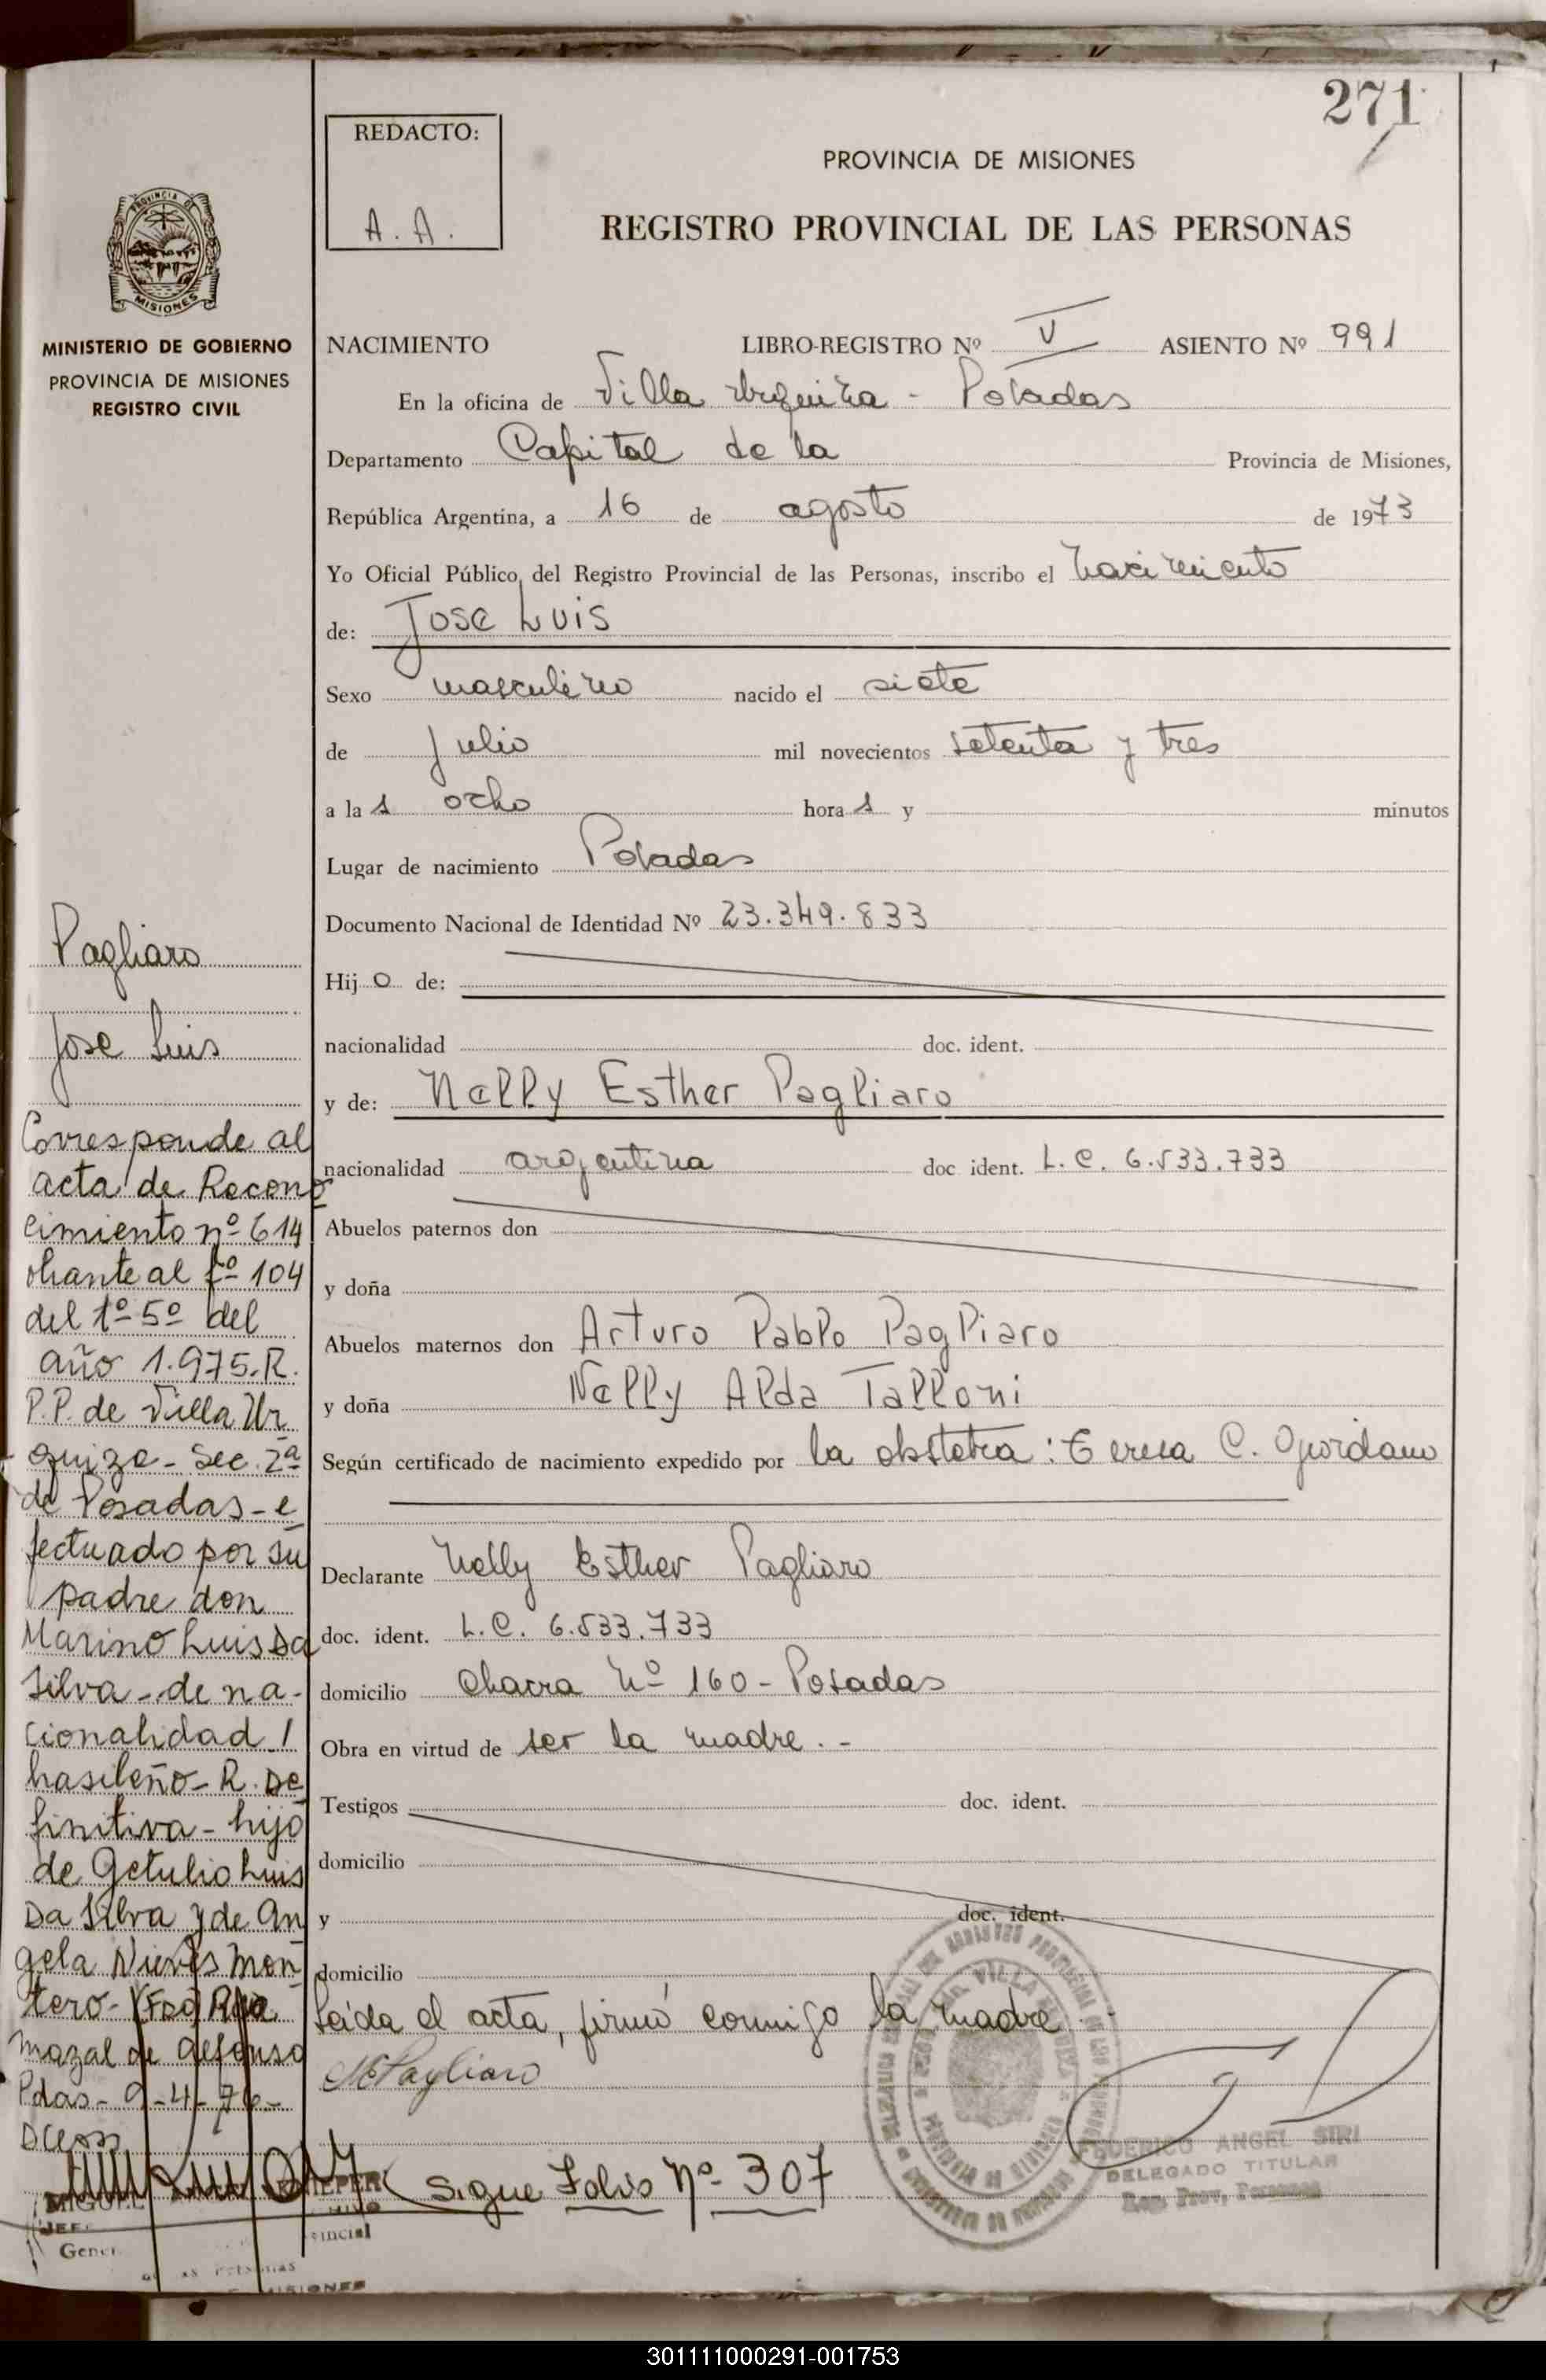 271
REDACTO:
A. A.
PROVINCIA DE MISIONES
REGISTRO PROVINCIAL DE LAS PERSONAS
PROVINCIA DE
MISIONES
MINISTERIO DE GOBIERNO
PROVINCIA DE MISIONES
REGISTRO CIVIL
NACIMIENTO LIBRO-REGISTRO Nº V ASIENTO Nº 991
En la oficina de Villa Urquiza - Posadas
Departamento Capital de la Provincia de Misiones,
República Argentina, a 16 de agosto de 1973
Yo Oficial Público, del Registro Provincial de las Personas, inscribo el nacimiento
de: Jose Luis
Sexo masculino nacido el siete
de Julio mil novecientos setenta y tres
a las ocho horas y minutos
Lugar de nacimiento Posadas
Documento Nacional de Identidad Nº 23.349.833
Hijo de:
nacionalidad doc. ident.
y de: Nelly Esther Pagliaro
nacionalidad argentina doc ident. L.C. 6.533.733
Abuelos paternos don
y doña
Abuelos maternos don Arturo Pablo Pagliaro
y doña Nelly Alda Talloni
Según certificado de nacimiento expedido por la obstetra: Teresa C. Giordano
Declarante Nelly Esther Pagliaro
doc. ident. L.C. 6.533.733
domicilio Chacra Nº 160 - Posadas
Obra en virtud de ser la madre. -
Testigos doc. ident.
domicilio
y doc. ident.
domicilio
Leida el acta, firmó conmigo la madre
NEPagliaro
Sigue Folio Nº 307
FEDERICO ANGEL SIRI
DELEGADO TITULAR
Reg. Prov. Personas
Pagliaro
Jose Luis
Corresponde al
acta de Recono
cimiento nº 614
obrante al fº 104
del tº 5º del
año 1.975. R.
P.P. de Villa Ur
quiza - Sec. 2ª
de Posadas - e
fectuado por su
padre don
Marino Luis Da
Silva - de na-
cionalidad /
brasileño - R. De
finitiva - hijo
de Getulio Luis
Da Silva y de An
gela Nieves Mon
tero - (Fdo)
mazal de Alfonso
Pdas - 9-4-76 -
MIGUEL
JEFE
301111000291-001753